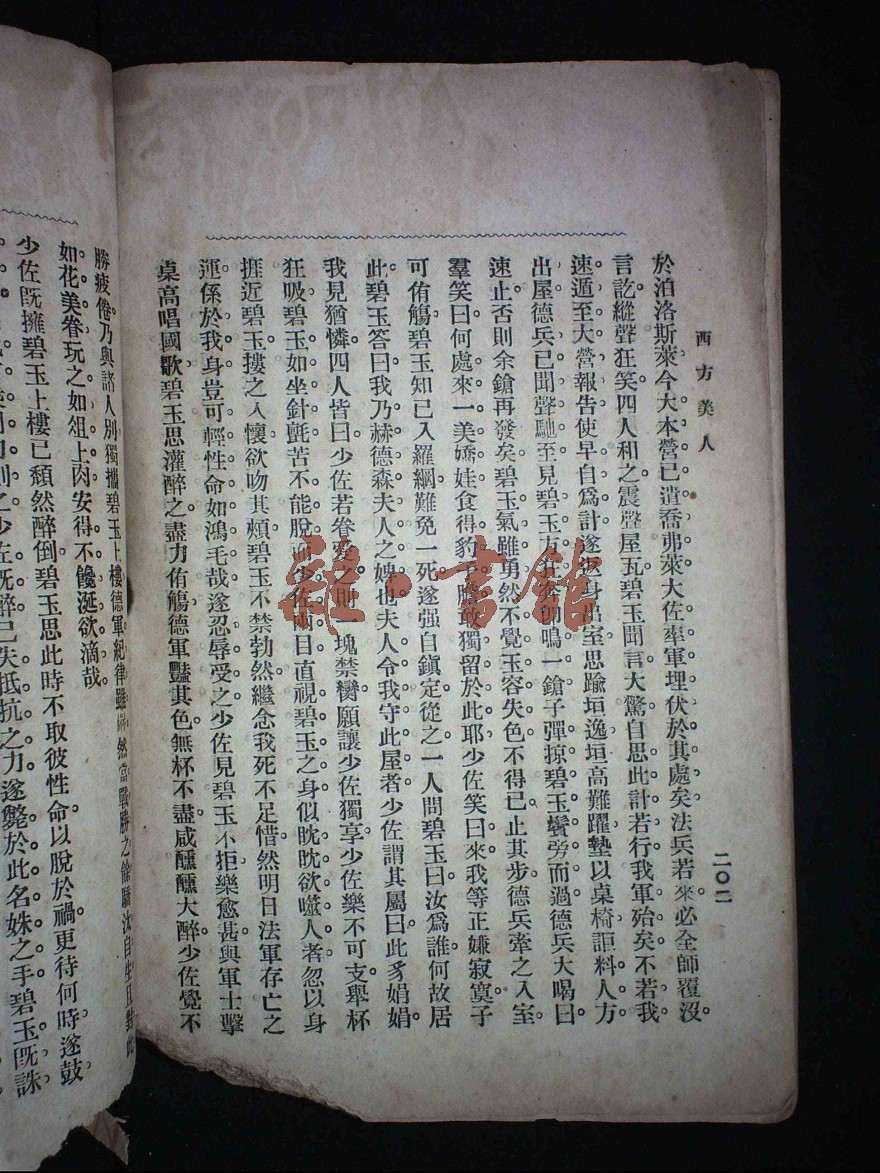 西方美人
二〇二
於泊洛斯萊今大本營已遣喬弗萊大佐率軍埋伏於其處矣法兵若來必全師覆沒。
言訖縱聲狂笑四人和之震聲屋瓦碧玉聞言大驚自思此計若行我軍殆矣不若我
速遁至大營報告使早自爲計遂返身出室思踰垣逸垣高難躍墊以桌椅詎料人方
出屋德兵已聞聲馳至見碧玉方 鳴一鎗子彈掠碧玉鬢旁而過德兵大喝曰
速止否則余鎗再發矣碧玉氣雖勇然不覺玉容失色不得已止其步德兵牽之入室
羣笑曰何處來一美嬌娃食得豹子膽敢獨留於此耶少佐笑曰來我等正嫌寂寞子
可侑觴碧玉知已入羅網難免一死遂强自鎭定從之一人問碧玉曰汝爲誰何故居
此碧玉答曰我乃赫德森夫人之婢也夫人令我守此屋者少佐謂其屬曰此豸娟娟
我見猶憐四人皆曰少佐若眷愛之則一塊禁臠願讓少佐獨享少佐樂不可支舉杯
狂吸碧玉如坐針氈苦不能脫而少佐兩目直視碧玉之身似眈眈欲噬人者忽以身
捱近碧玉摟之入懷欲吻其頰碧玉不禁勃然繼念我死不足惜然明日法軍存亡之
運係於我身豈可輕性命如鴻毛哉遂忍辱受之少佐見碧玉不拒樂愈甚與軍士擊
桌高唱國歌碧玉思灌醉之盡力侑觴德軍豔其色無杯不盡咸醺醺大醉少佐覺不
勝疲倦乃與諸人別獨攜碧玉上樓德軍紀律雖 然當戰勝之餘驕 自生且對此
如花美眷玩之如俎上肉安得不饞涎欲滴哉。
少佐旣擁碧玉上樓已頹然醉倒碧玉思此時不取彼性命以脫於禍更待何時遂鼓
之少佐旣醉已失抵抗之力遂斃於此名姝之手碧玉旣誅
龍 書館